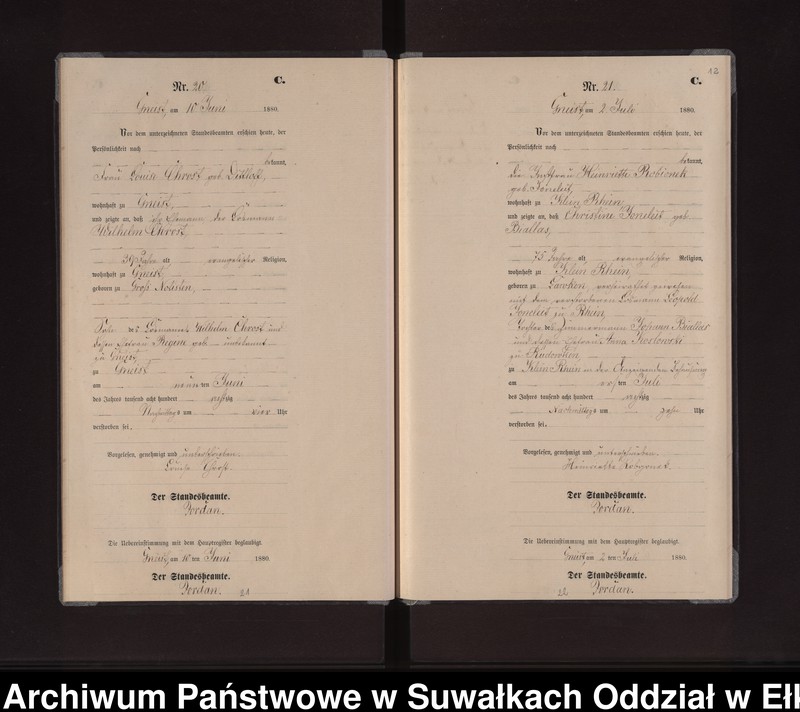 Nr. 20
C.
Gneist, am 10 Juni 1880.
Vor dem unterzeichneten Standesbeamten erschien heute, der
Persönlichkeit nach
bekannt,
Frau Louise Chrost geb.
wohnhaft zu Gneist,
und zeigte an, daß ihr Ehemann, der Losmann
Wilhelm Chrost,
39 Jahre alt evangelischer Religion,
wohnhaft zu Gneist,
geboren zu Groß
Sohn des Losmanns Wilhelm Chrost und
dessen Ehefrau Regine geb. unbekannt
zu Gneist,
zu Gneist
am neunten Juni
des Jahres tausend acht hundert achtzig
Nachmittags um vier Uhr
verstorben sei.
Vorgelesen, genehmigt und unterschrieben.
Louise Chrost.
Der Standesbeamte.
Jordan.
Die Uebereinstimmung mit dem Hauptregister beglaubigt.
Gneist, am 10 ten Juni 1880.
Der Standesbeamte.
Jordan.
21
12
Nr. 21.
C.
Gneist, am 2 Juli 1880.
Vor dem unterzeichneten Standesbeamten erschien heute, der
Persönlichkeit nach
bekannt,
die Heinriette
geb. Joneleit,
wohnhaft zu Klein Rhein,
und zeigte an, daß Christine Joneleit geb.
Biallas,
75 Jahre alt evangelischer Religion,
wohnhaft zu Klein Rhein,
geboren zu Lawken, verheirathet gewesen
mit dem verstorbenen Losmann Leopold
Joneleit zu Rhein,
Tochter des Zimmermann Johann Biallas
und dessen Ehefrau Anna Koslowski
zu
zu Klein Rhein in der
am ersten Juli
des Jahres tausend acht hundert achtzig
Nachmittags um zehn Uhr
verstorben sei.
Vorgelesen, genehmigt und unterschrieben.
Heinriette
Der Standesbeamte.
Jordan.
Die Uebereinstimmung mit dem Hauptregister beglaubigt.
Gneist, am 2 ten Juli 1880.
Der Standesbeamte.
Jordan.
22
Archiwum Państwowe w Suwałkach Oddział w Ełk